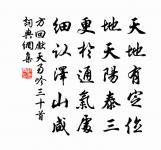 天地有定位
地天陽泰三
更於通氣處
細認澤山咸
方回獻天易吟三十首
詞典網集